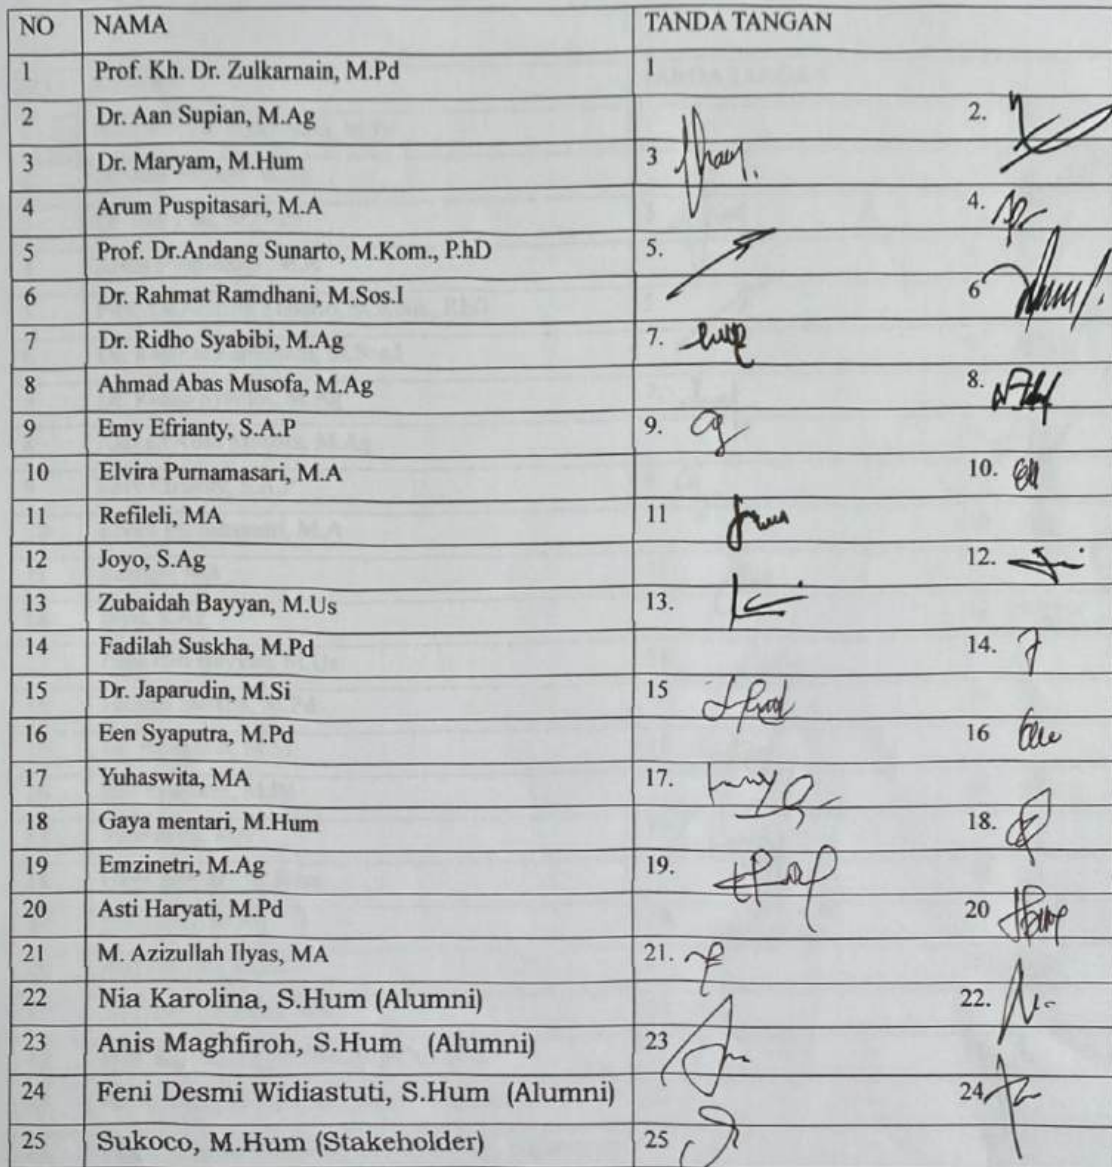 NO NAMA TANDA TANGAN
1 Prof. Kh. Dr. Zulkarnain, M.Pd 1
2 Dr. Aan Supian, M.Ag 2.
3 Dr. Maryam, M.Hum 3
4 Arum Puspitasari, M.A 4.
5 Prof. Dr.Andang Sunarto, M.Kom., P.hD 5.
6 Dr. Rahmat Ramdhani, M.Sos.I 6
7 Dr. Ridho Syabibi, M.Ag 7.
8 Ahmad Abas Musofa, M.Ag 8.
9 Emy Efrianty, S.A.P 9.
10 Elvira Purnamasari, M.A 10.
11 Refileli, MA 11
12 Joyo, S.Ag 12.
13 Zubaidah Bayyan, M.Us 13.
14 Fadilah Suskha, M.Pd 14.
15 Dr. Japarudin, M.Si 15
16 Een Syaputra, M.Pd 16
17 Yuhaswita, MA 17.
18 Gaya mentari, M.Hum 18.
19 Emzinetri, M.Ag 19.
20 Asti Haryati, M.Pd 20
21 M. Azizullah Ilyas, MA 21.
22 Nia Karolina, S.Hum (Alumni) 22.
23 Anis Maghfiroh, S.Hum (Alumni) 23
24 Feni Desmi Widiastuti, S.Hum (Alumni) 24
25 Sukoco, M.Hum (Stakeholder) 25